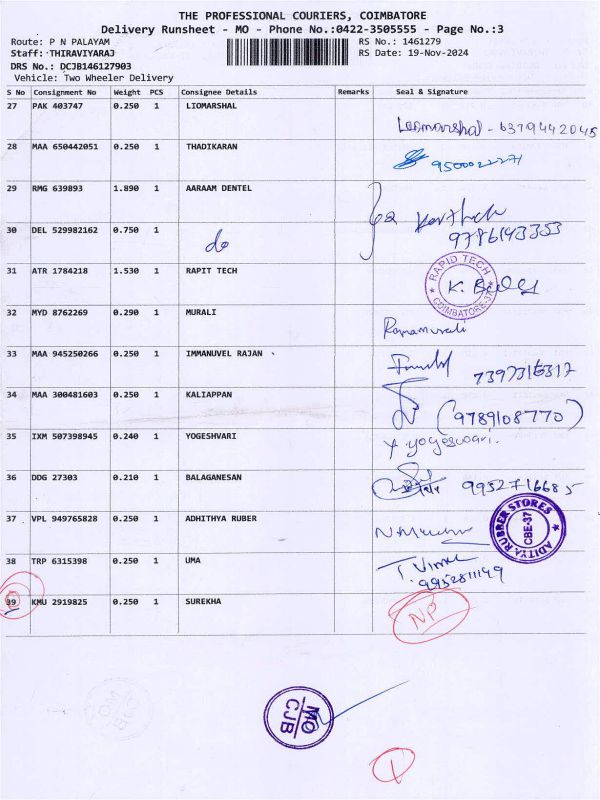 THE PROFESSIONAL COURIERS, COIMBATORE
Delivery Runsheet - MO - Phone No.:0422-3505555 - Page No.:3
Route: P N PALAYAM RS No.: 1461279
Staff: THIRAVIYARAJ RS Date: 19-Nov-2024
DRS No.: DCJB146127903
Vehicle: Two Wheeler Delivery
S No Consignment No Weight PCS Consignee Details Remarks Seal & Signature
27 PAK 403747 0.250 1 LIOMARSHAL
Leomarshal - 6379442045
28 MAA 650442051 0.250 1 THADIKARAN
29 RMG 639893 1.890 1 AARAAM DENTEL
30 DEL 529982162 0.750 1 do
9786143353
31 ATR 1784218 1.530 1 RAPIT TECH
RAPID TECH
COIMBATORE-37
32 MYD 8762269 0.290 1 MURALI
Ramamurali
33 MAA 945250266 0.250 1 IMMANUVEL RAJAN
34 MAA 300481603 0.250 1 KALIAPPAN
(9789108770)
35 IXM 507398945 0.240 1 YOGESHVARI
Y. yogeswari.
36 DDG 27303 0.210 1 BALAGANESAN
9952716685
37 VPL 949765828 0.250 1 ADHITHYA RUBER
ADITYA RUBBER STORES
CBE-37
38 TRP 6315398 0.250 1 UMA
9952811149
39 KMU 2919825 0.250 1 SUREKHA
NP
MO
CJB
MO
CJB
1